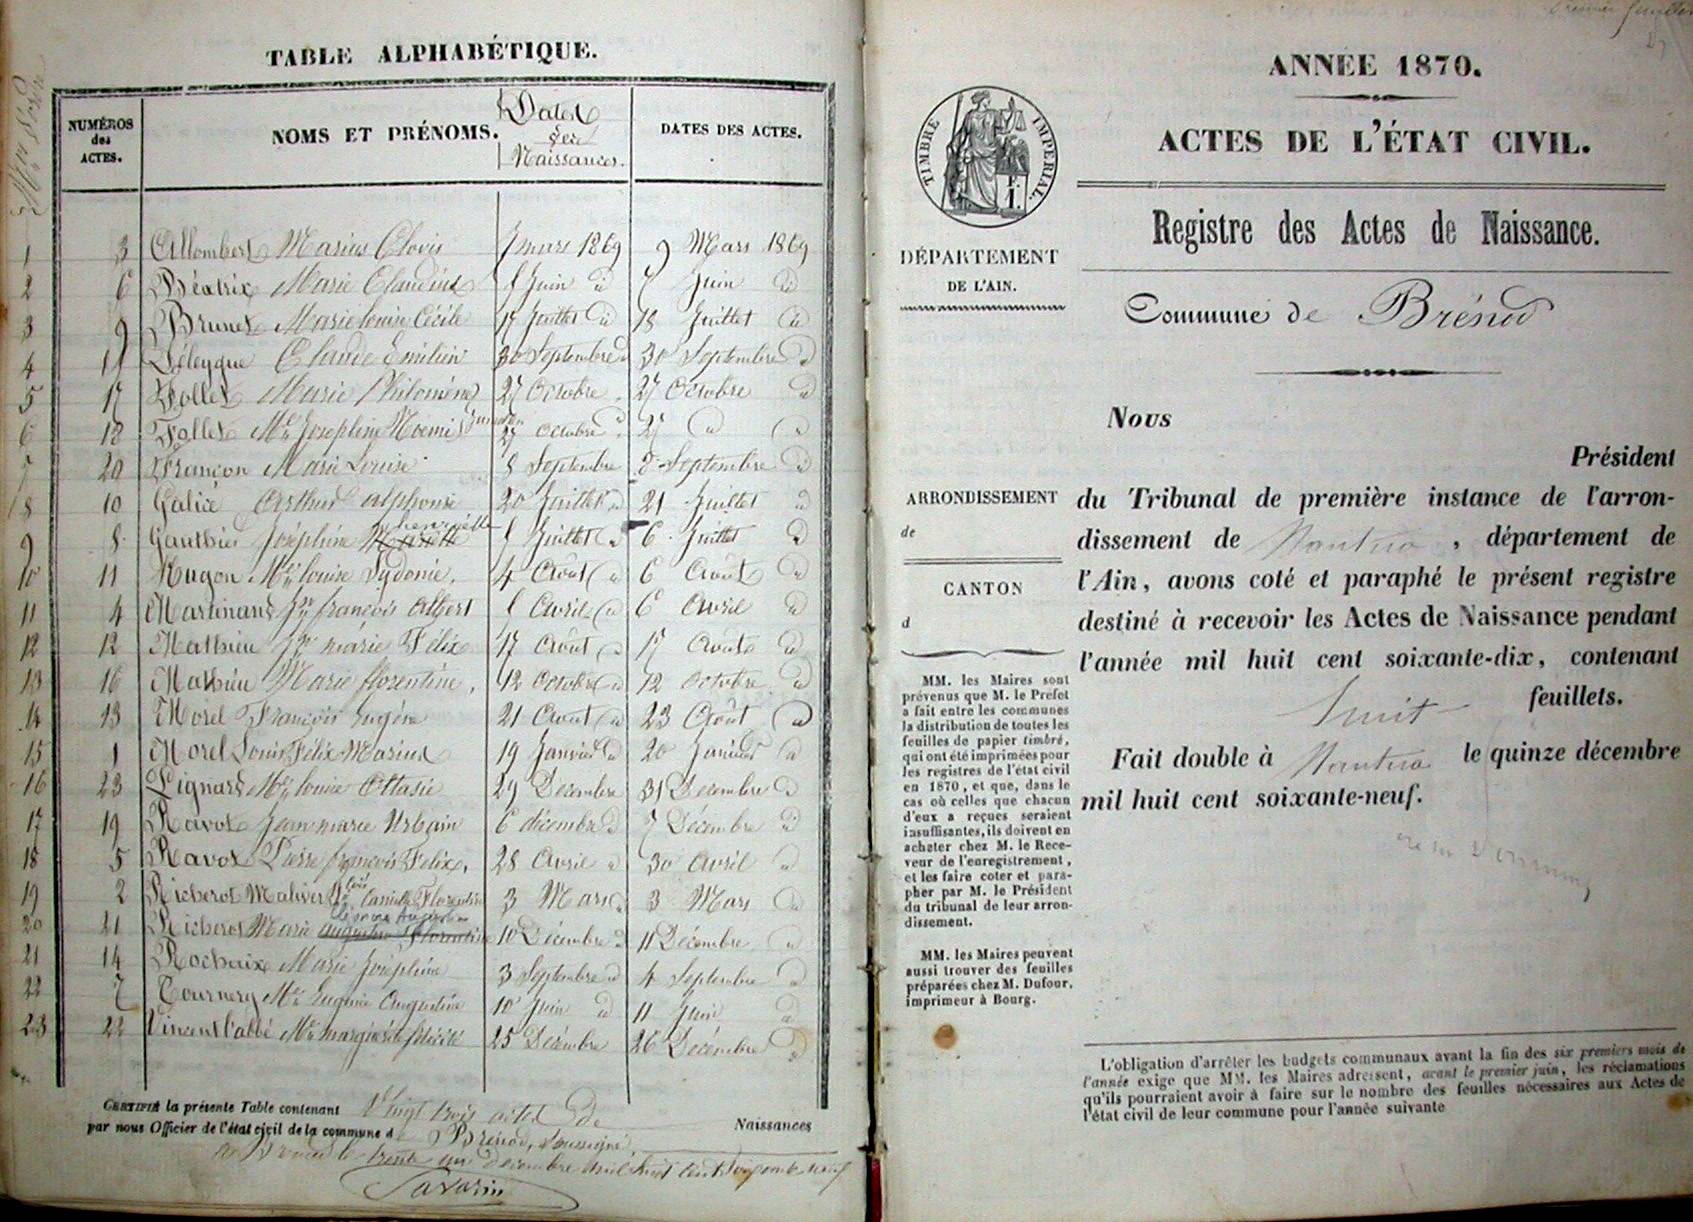 TABLE ALPHABÉTIQUE.
NUMÉROS
des
ACTES.
NOMS ET PRÉNOMS.
Dates
des
Naissances.
DATES DES ACTES.
1 3 Allombert Marius Clovis 7 mars 1869 9 Mars 1869
2 6 Béatrix Marie Claudine 5 Juin id 7 Juin id
3 9 Brunet Marie louise Cécile 17 Juillet id 18 Juillet id
4 15 Claude Emilien 30 Septembre id 30 Septembre id
5 17 Follet Marie Philomène 27 Octobre 27 Octobre id
6 18 Follet Mie Joséphine Noémi 27 octobre id 27 id id
7 20 Françon Marie Louise 8 Septembre 8 Septembre id
8 10 Galice Arthur alphonse 20 Juillet id 21 Juillet id
9 8 Gauthier Joséphine henriette 5 Juillet id 6 Juillet id
10 11 Hugon Mie louise Sydonie. 4 Août id 6 Août id
11 4 Martinand Jn françois Albert 5 Avril id 6 Avril id
12 12 Mathieu Jh marie Félix 17 Août id 17 Août id
13 16 Mathieu Marie florentine, 12 Octobre id 12 Octobre id
14 13 Morel François Eugène 21 Août id 23 Août id
15 1 Morel Louis Félix Marius 19 Janvier id 20 Janvier id
16 23 Pignard Mie louise 29 Décembre 31 Décembre id
17 19 Ravot Jean marie Urbain 6 décembre id 7 Décembre id
18 5 Ravot Pierre françois Felix, 28 Avril id 30 Avril id
19 2 Richerot Malivert Camille Florentin 3 Mars id 3 Mars id
20 21 Richerot Marie 10 Décembre id 11 Décembre id
21 14 Rochaix Marie Joséphine 3 Septembre id 4 Septembre id
22 7 Tournery Mie Eugénie Augustine 10 Juin id 11 Juin id
23 22 Vincent l'abbé Mie marguerite 25 Décembre 26 Décembre id
CERTIFIÉ la présente Table contenant Vingt trois actes de Naissances
par nous Officier de l'état civil de la commune de Brénod, soussigné,
A Brénod le trente un décembre mil huit cent soixante neuf
Savarin
ANNÉE 1870.
ACTES DE L'ÉTAT CIVIL.
TIMBRE IMPERIAL.
DÉPARTEMENT
DE L'AIN.
Registre des Actes de Naissance.
Commune de Brénod
ARRONDISSEMENT
de
CANTON
d
MM. les Maires sont
prévenus que M. le Préfet
a fait entre les communes
la distribution de toutes les
feuilles de papier timbré,
qui ont été imprimées pour
les registres de l'état civil
en 1870, et que, dans le
cas où celles que chacun
d'eux a reçues seraient
insuffisantes, ils doivent en
acheter chez M. le Rece-
veur de l'enregistrement,
et les faire coter et para-
pher par M. le Président
du tribunal de leur arron-
dissement.
MM. les Maires peuvent
aussi trouver des feuilles
préparées chez M. Dufour,
imprimeur à Bourg.
Nous
Président
du Tribunal de première instance de l'arron-
dissement de Nantua, département de
l'Ain, avons coté et paraphé le présent registre
destiné à recevoir les Actes de Naissance pendant
l'année mil huit cent soixante-dix, contenant
huit feuillets.
Fait double à Nantua le quinze décembre
mil huit cent soixante-neuf.
L'obligation d'arrêter les budgets communaux avant la fin des six premiers mois de
l'année exige que MM. les Maires adressent, avant le premier juin, les réclamations
qu'ils pourraient avoir à faire sur le nombre des feuilles nécessaires aux Actes de
l'état civil de leur commune pour l'année suivante